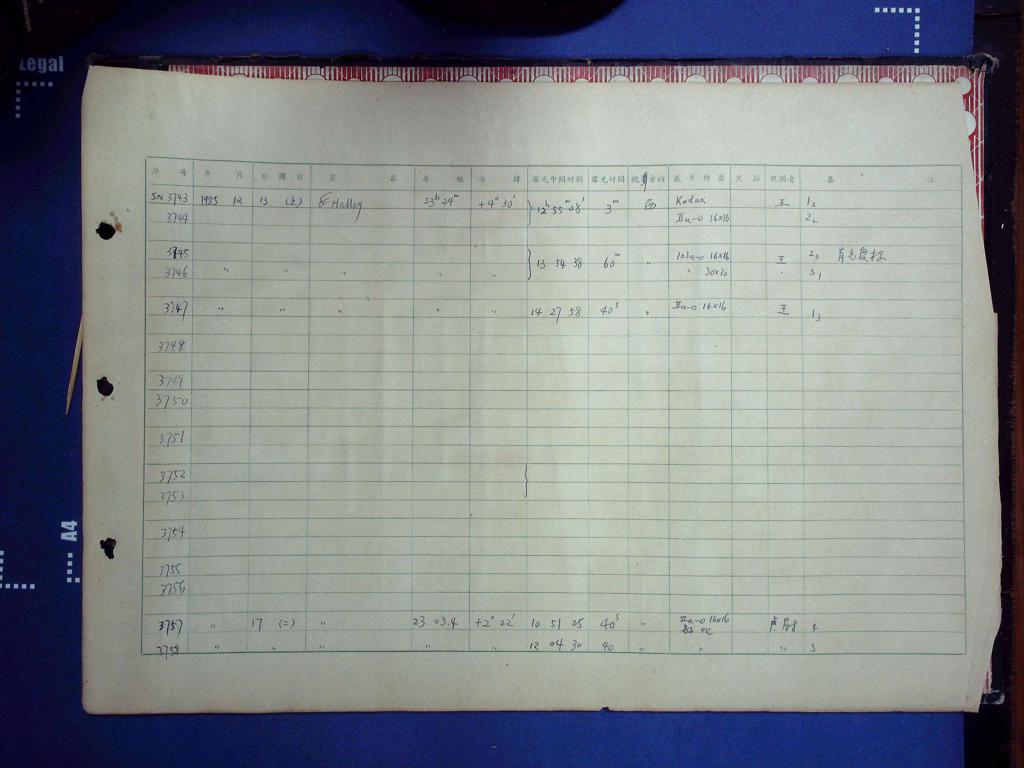 Legal
A4
序 号 年 月 日 周 日 星 名 赤 经 赤 纬 露光中间时刻 露光时间 镜 方向 底 片 种 类 观测者 备 注
SN 3743 1985 12 13 (五) Halley 23h 24m +4° 30′ 12h 55m 08s 3m 西 Kodak 王 12
3744 IIa-o 16×16 22
3745 13 54 38 60m " 103a-o 16×16 王 23 有光度标
3746 " " " " " " 30×30 " 31
3747 " " " " " 14 27 58 40s " IIa-o 16×16 王 13
3748
3749
3750
3751
3752
3753
3754
3755
3756
3757 " 17 (二) " 23 03.4 +2° 22′ 10 51 25 40s " IIa-o 16×16 4
3758 " " " " " 12 04 30 40 " " " 3